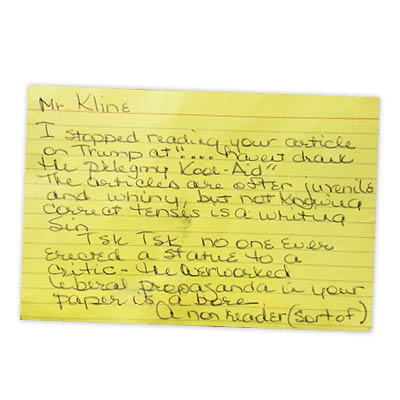 Mr. Kline
I stopped reading your article
on Trump at ".... haven't drank
the phlegmy Kool-Aid"
The articles are often juvenile
and whiny, but not knowing
correct tenses is a writing
sin.
Tsk Tsk no one ever
erected a statue to a
critic - the overworked
liberal propaganda in your
paper is a bore.
A non reader (sort of)